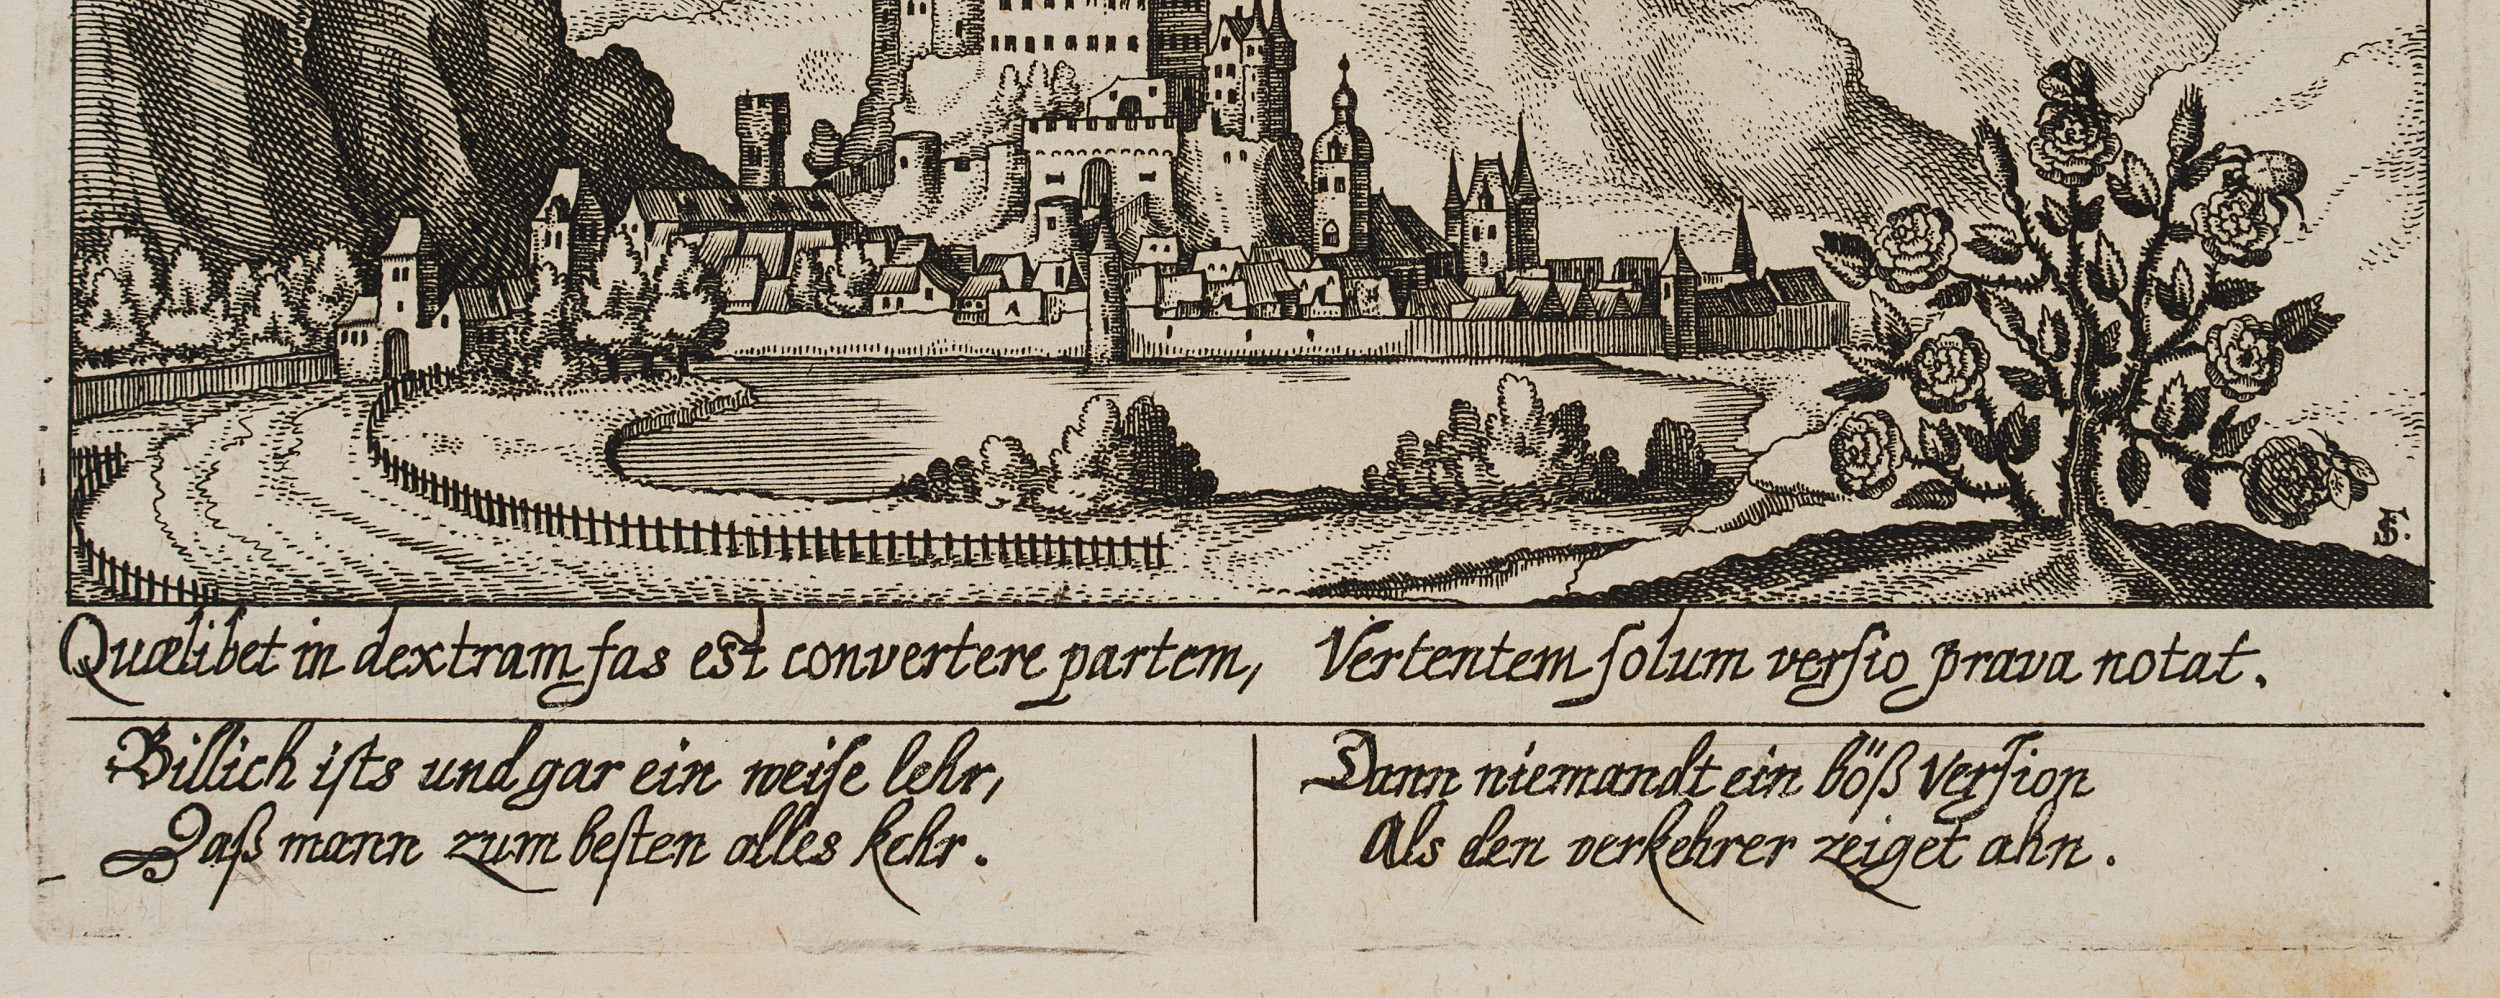 Quælibet in dextram fas est convertere partem, Vertentem ſolum verſio prava notat.
Billich iſts und gar ein weiſe lehr,
Daß mann zum beſten alles kehr.
Dann niemandt ein böß Verſion
Als den verkehrer zeiget ahn.